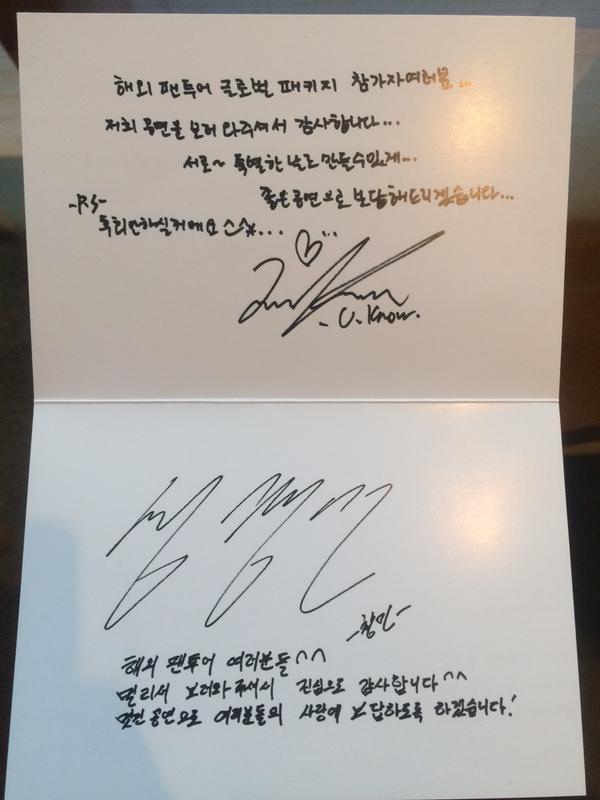 해외 팬투어 글로벌 패키지 참가자여러분...
저희 공연을 보러 와주셔서 감사합니다...
서로~ 특별한 날로 만들수있게...
좋은공연으로 보답해드리겠습니다...
-P.S-
후회안하실거에요
♡...
- U. Know.
심창민
-창민-
해외 팬투어 여러분들^^
멀리서 보러와주셔서 진심으로 감사합니다^^
멋진공연으로 여러분들의 사랑에 보답하도록 하겠습니다!